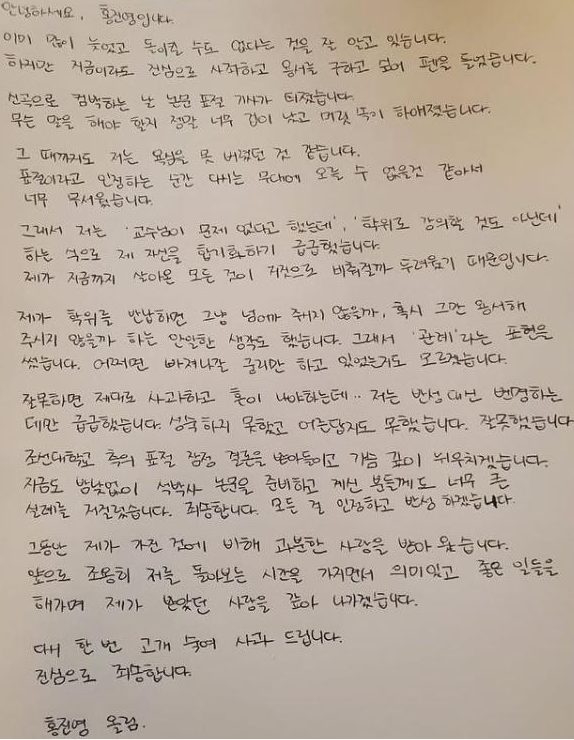 안녕하세요, 홍진영입니다.
이미 많이 늦었고 돌이킬 수도 없다는 것을 잘 알고 있습니다.
하지만 지금이라도 진심으로 사죄하고 용서를 구하고 싶어 펜을 들었습니다.
신곡으로 컴백하는 날 논문 표절 기사가 터졌습니다.
무슨 말을 해야 할지 정말 너무 겁이 났고 머릿속이 하얘졌습니다.
그 때까지도 저는 욕심을 못 버렸던 것 같습니다.
표절이라고 인정하는 순간 다시는 무대에 오를 수 없을것 같아서
너무 무서웠습니다.
그래서 저는 '교수님이 문제 없다고 했는데', '학위로 강의할 것도 아닌데'
하는 식으로 제 자신을 합리화하기 급급했습니다.
제가 지금까지 살아온 모든 것이 거짓으로 비춰질까 두려웠기 때문입니다.
제가 학위를 반납하면 그냥 넘어가 주시지 않을까, 혹시 그만 용서해
주시지 않을까 하는 안일한 생각도 했습니다. 그래서 '관례'라는 표현을
썼습니다. 어쩌면 빠져나갈 궁리만 하고 있었는지도 모르겠습니다.
잘못하면 제대로 사과하고 혼이 나야하는데.. 저는 반성 대신 변명하는
데만 급급했습니다. 성숙하지 못했고 어른답지도 못했습니다. 잘못했습니다
조선대학교 측의 표절 잠정 결론을 받아들이고 가슴 깊이 뉘우치겠습니다.
지금도 밤낮없이 석박사 논문을 준비하고 계신 분들께도 너무 큰
실례를 저질렀습니다. 죄송합니다. 모든 걸 인정하고 반성 하겠습니다.
그동안 제가 가진 것에 비해 과분한 사랑을 받아 왔습니다.
앞으로 조용히 저를 돌아보는 시간을 가지면서 의미있고 좋은 일들을
해가며 제가 받았던 사랑을 갚아 나가겠습니다.
다시 한 번 고개 숙여 사과 드립니다.
진심으로 죄송합니다.
홍진영 올림.